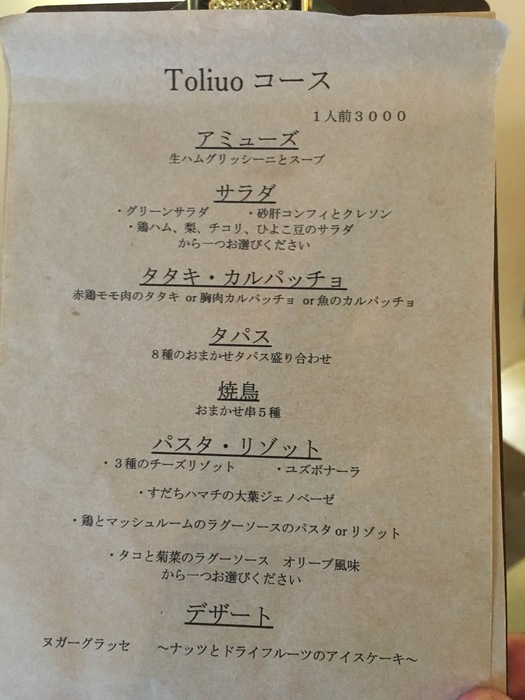 Toliuo コース
１人前３０００
アミューズ
生ハムグリッシーニとスープ
サラダ
・グリーンサラダ　・砂肝コンフィとクレソン
・鶏ハム、梨、チコリ、ひよこ豆のサラダ
から一つお選びください
タタキ・カルパッチョ
赤鶏モモ肉のタタキ or 胸肉カルパッチョ or 魚のカルパッチョ
タパス
８種のおまかせタパス盛り合わせ
焼鳥
おまかせ串５種
パスタ・リゾット
・３種のチーズリゾット　・ユズボナーラ
・すだちハマチの大葉ジェノベーゼ
・鶏とマッシュルームのラグーソースのパスタ or リゾット
・タコと菊菜のラグーソース　オリーブ風味
から一つお選びください
デザート
ヌガーグラッセ　～ナッツとドライフルーツのアイスケーキ～